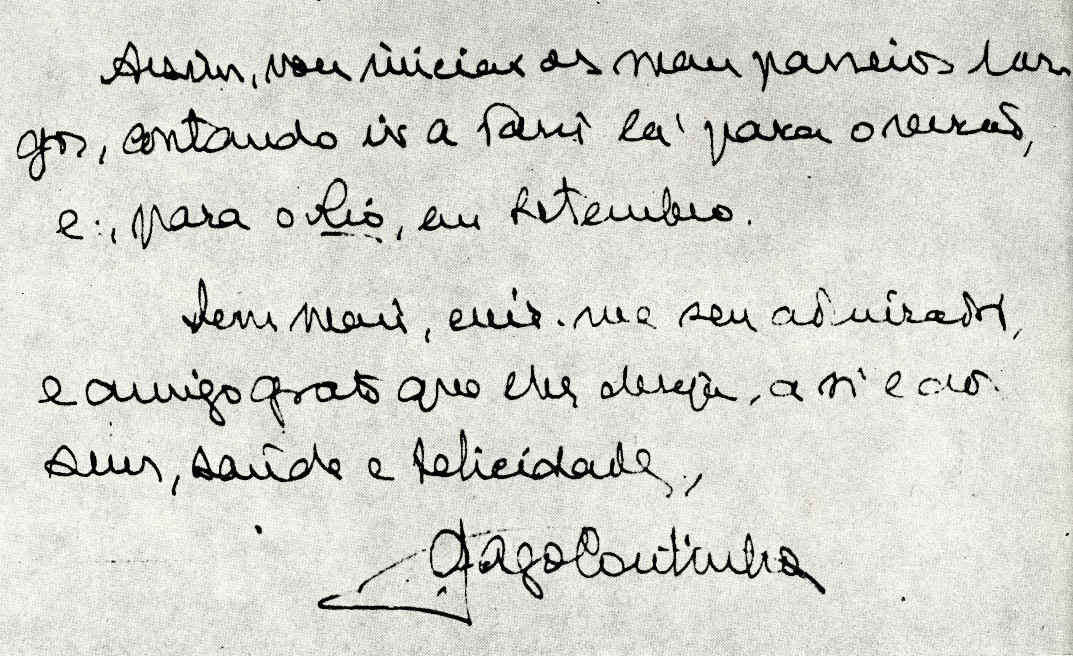 Assim, vou iniciar os meus passeios lar-
gos, contando ir a Paris lá para o verão,
e, para o Rio, em Setembro.
Sem mais, creia-me seu admirador,
e amigo grato que lhe deseja, a si e aos
seus, saúde e felicidade,
Gago Coutinho